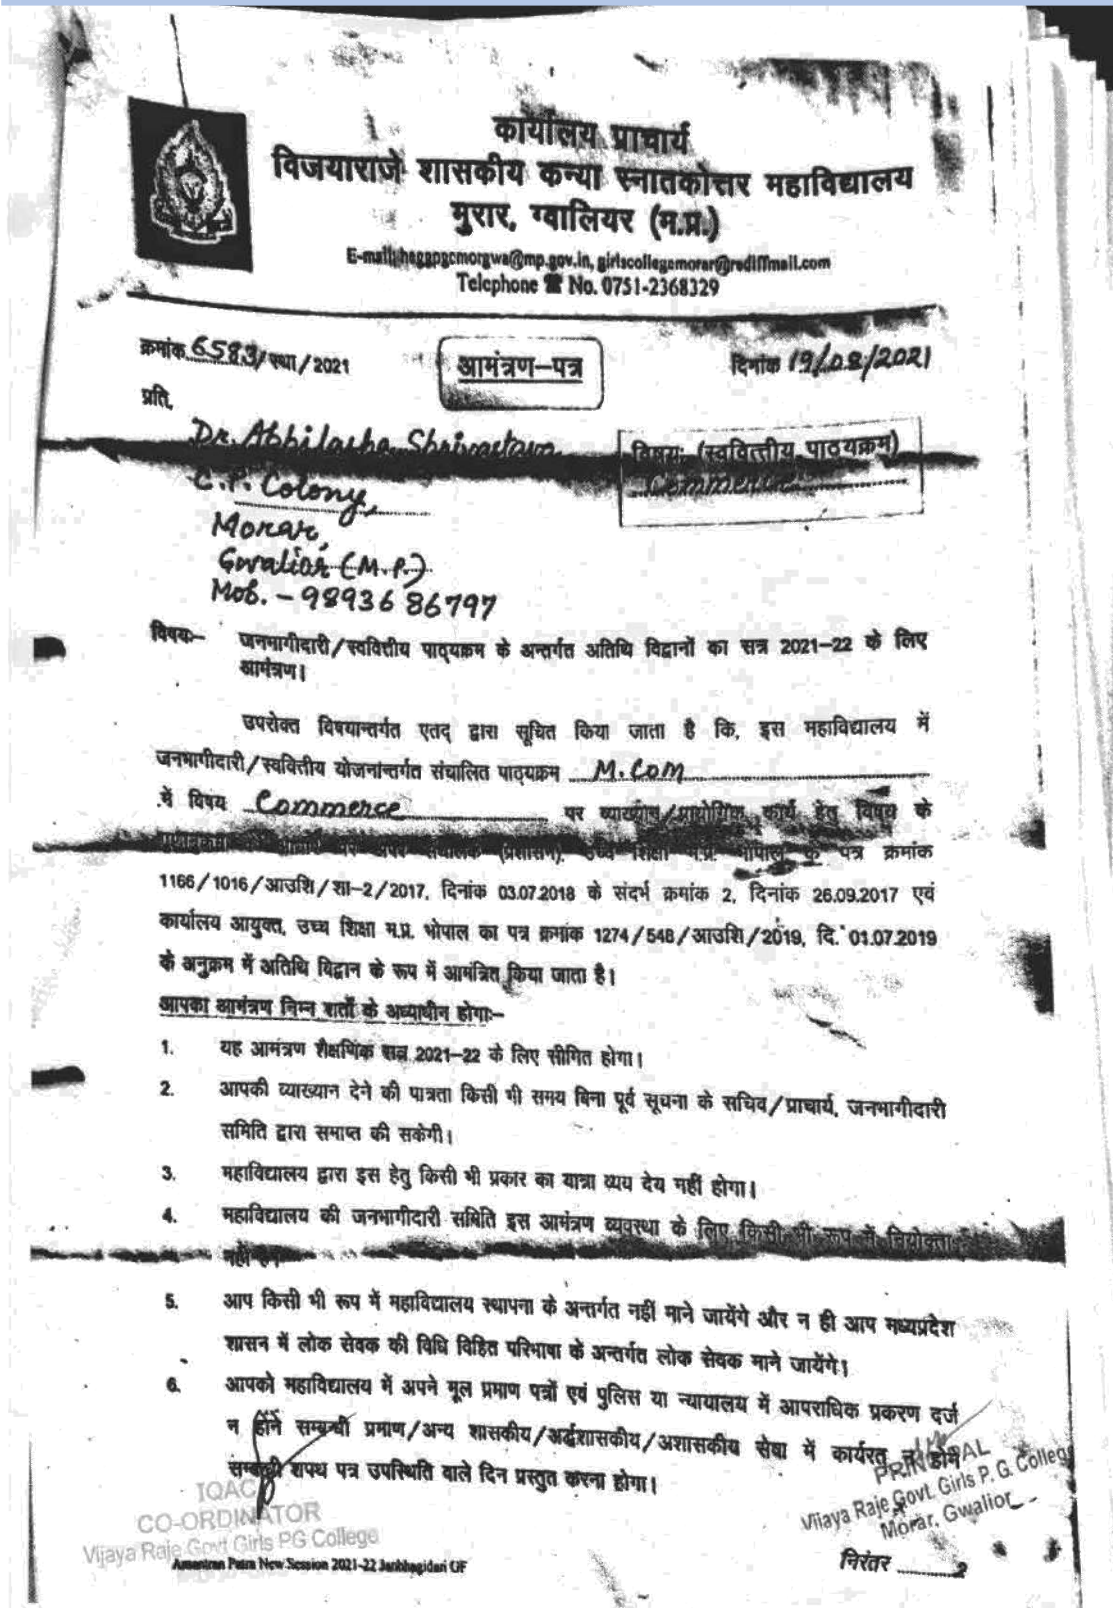 कार्यालय प्राचार्य
विजयाराजे शासकीय कन्या स्नातकोत्तर महाविद्यालय
मुरार, ग्वालियर (म.प्र.)
E-mail: heggpgcmorgwa@mp.gov.in, girlscollegemorar@rediffmail.com
Telephone ☎ No. 0751-2368329
क्रमांक 6583/स्था/2021
आमंत्रण-पत्र
दिनांक 19/08/2021
प्रति,
Dr. Abhilasha Shrivastava
विषय: (स्ववित्तीय पाठयक्रम)
Commerce
C.P. Colony,
Morar,
Gwalior (M.P.)
Mob. - 98936 86797
विषय:- जनभागीदारी/स्ववित्तीय पाठ्यक्रम के अन्तर्गत अतिथि विद्वानों का सत्र 2021-22 के लिए
आमंत्रण।
उपरोक्त विषयान्तर्गत एतद् द्वारा सूचित किया जाता है कि, इस महाविद्यालय में
जनभागीदारी/स्ववित्तीय योजनांन्तर्गत संचालित पाठ्यक्रम M.Com
में विषय Commerce पर व्याख्यान/प्रायोगिक कार्य हेतु विषय के
संचालक (प्रशासन), उच्च शिक्षा म.प्र. भोपाल के पत्र क्रमांक
1166/1016/आउशि/शा-2/2017, दिनांक 03.07.2018 के संदर्भ क्रमांक 2, दिनांक 26.09.2017 एवं
कार्यालय आयुक्त, उच्च शिक्षा म.प्र. भोपाल का पत्र क्रमांक 1274/548/आउशि/2019, दि. 01.07.2019
के अनुक्रम में अतिथि विद्वान के रूप में आमंत्रित किया जाता है।
आपका आमंत्रण निम्न शर्तों के अध्याधीन होगा:-
1. यह आमंत्रण शैक्षणिक सत्र 2021-22 के लिए सीमित होगा।
2. आपकी व्याख्यान देने की पात्रता किसी भी समय बिना पूर्व सूचना के सचिव/प्राचार्य, जनभागीदारी
समिति द्वारा समाप्त की सकेगी।
3. महाविद्यालय द्वारा इस हेतु किसी भी प्रकार का यात्रा व्यय देय नहीं होगा।
4. महाविद्यालय की जनभागीदारी समिति इस आमंत्रण व्यवस्था के लिए किसी भी रूप में नियोक्ता
नहीं है।
5. आप किसी भी रूप में महाविद्यालय स्थापना के अन्तर्गत नहीं माने जायेंगे और न ही आप मध्यप्रदेश
शासन में लोक सेवक की विधि विहित परिभाषा के अन्तर्गत लोक सेवक माने जायेंगे।
6. आपको महाविद्यालय में अपने मूल प्रमाण पत्रों एवं पुलिस या न्यायालय में आपराधिक प्रकरण दर्ज
न होने सम्बन्धी प्रमाण/अन्य शासकीय/अर्द्धशासकीय/अशासकीय सेवा में कार्यरत न होने
सम्बन्धी शपथ पत्र उपस्थिति वाले दिन प्रस्तुत करना होगा।
IQAC
CO-ORDINATOR
Vijaya Raje Govt Girls PG College
PRINCIPAL
Vijaya Raje Govt. Girls P. G. College
Morar, Gwalior
Amantran Patra New Session 2021-22 Janbhagidari GF
निरंतर 2